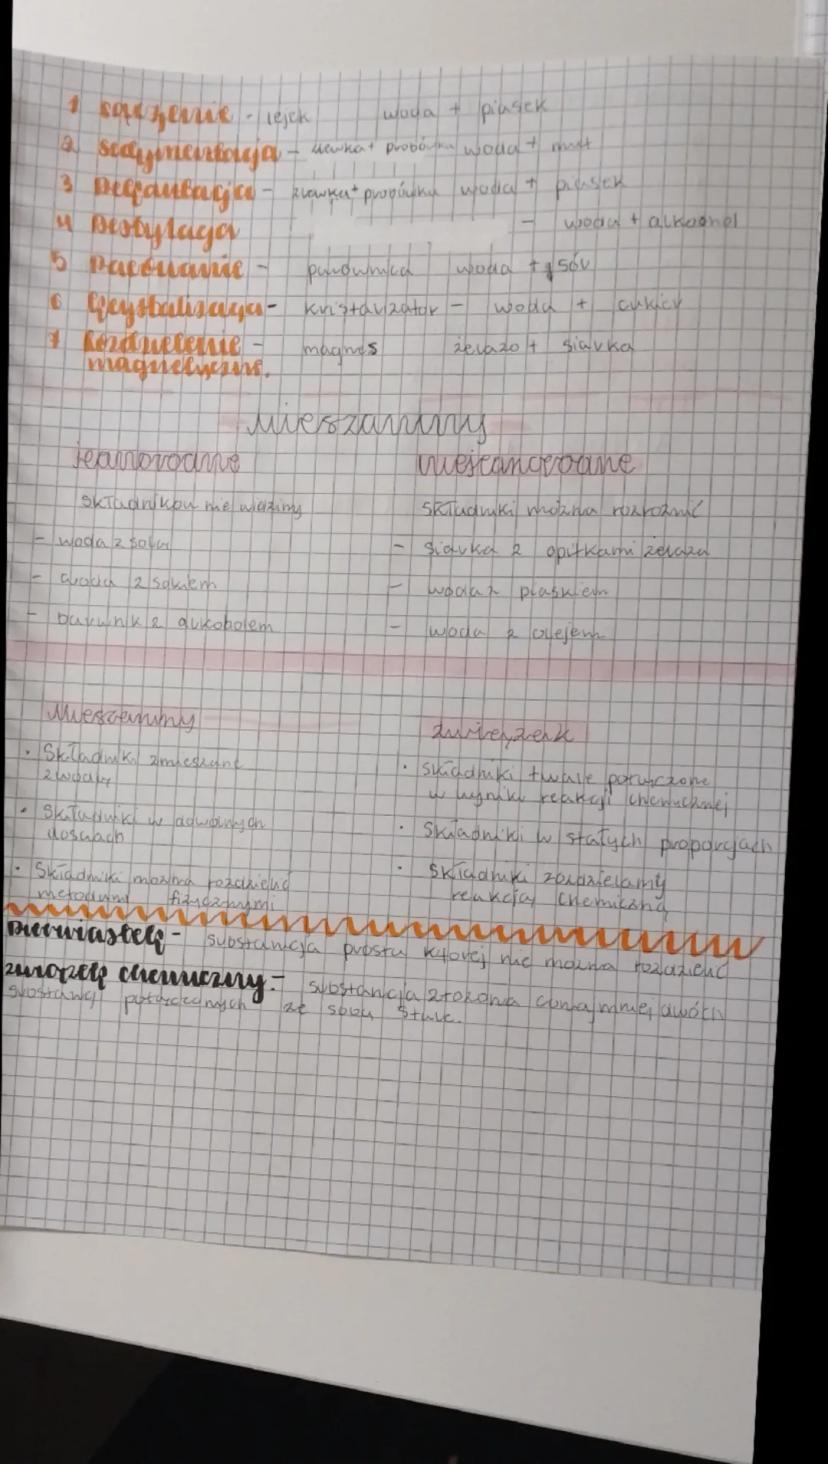 1 sączenie - lejek woda + piasek
2 sedymentacja - zlewka + probówka woda + 
3 Dekantacja - zlewka + probówka woda + piasek
4 Destylacja - woda + alkoohol
5 parowanie - parownica woda + sól
6 krystalizacja - kristalizator - woda + cukier
7 Rozdzielenie - magnes żelazo + siarka
magnetyczne.
Mieszaniny
jednorodne niejednorodne
składników nie widzimy składniki można rozróżnić
- woda z solą - siarka z opiłkami żelaza
- woda z sokiem - woda z piaskiem
- barwnik z alkoholem - woda z olejem
Mieszaniny związek
• składniki zmieszane • składniki trwale połączone
w wyniku reakcji chemicznej
• składniki w dowolnych • składniki w stałych proporcjach
ilościach
• składniki można rozdzielić • składniki rozdzielamy
metodami fizycznymi reakcją chemiczną
pierwiastek - substancja prosta której nie można rozdzielić
związek chemiczny - substancja złożona conajmniej dwóch
substancji połączonych ze sobą